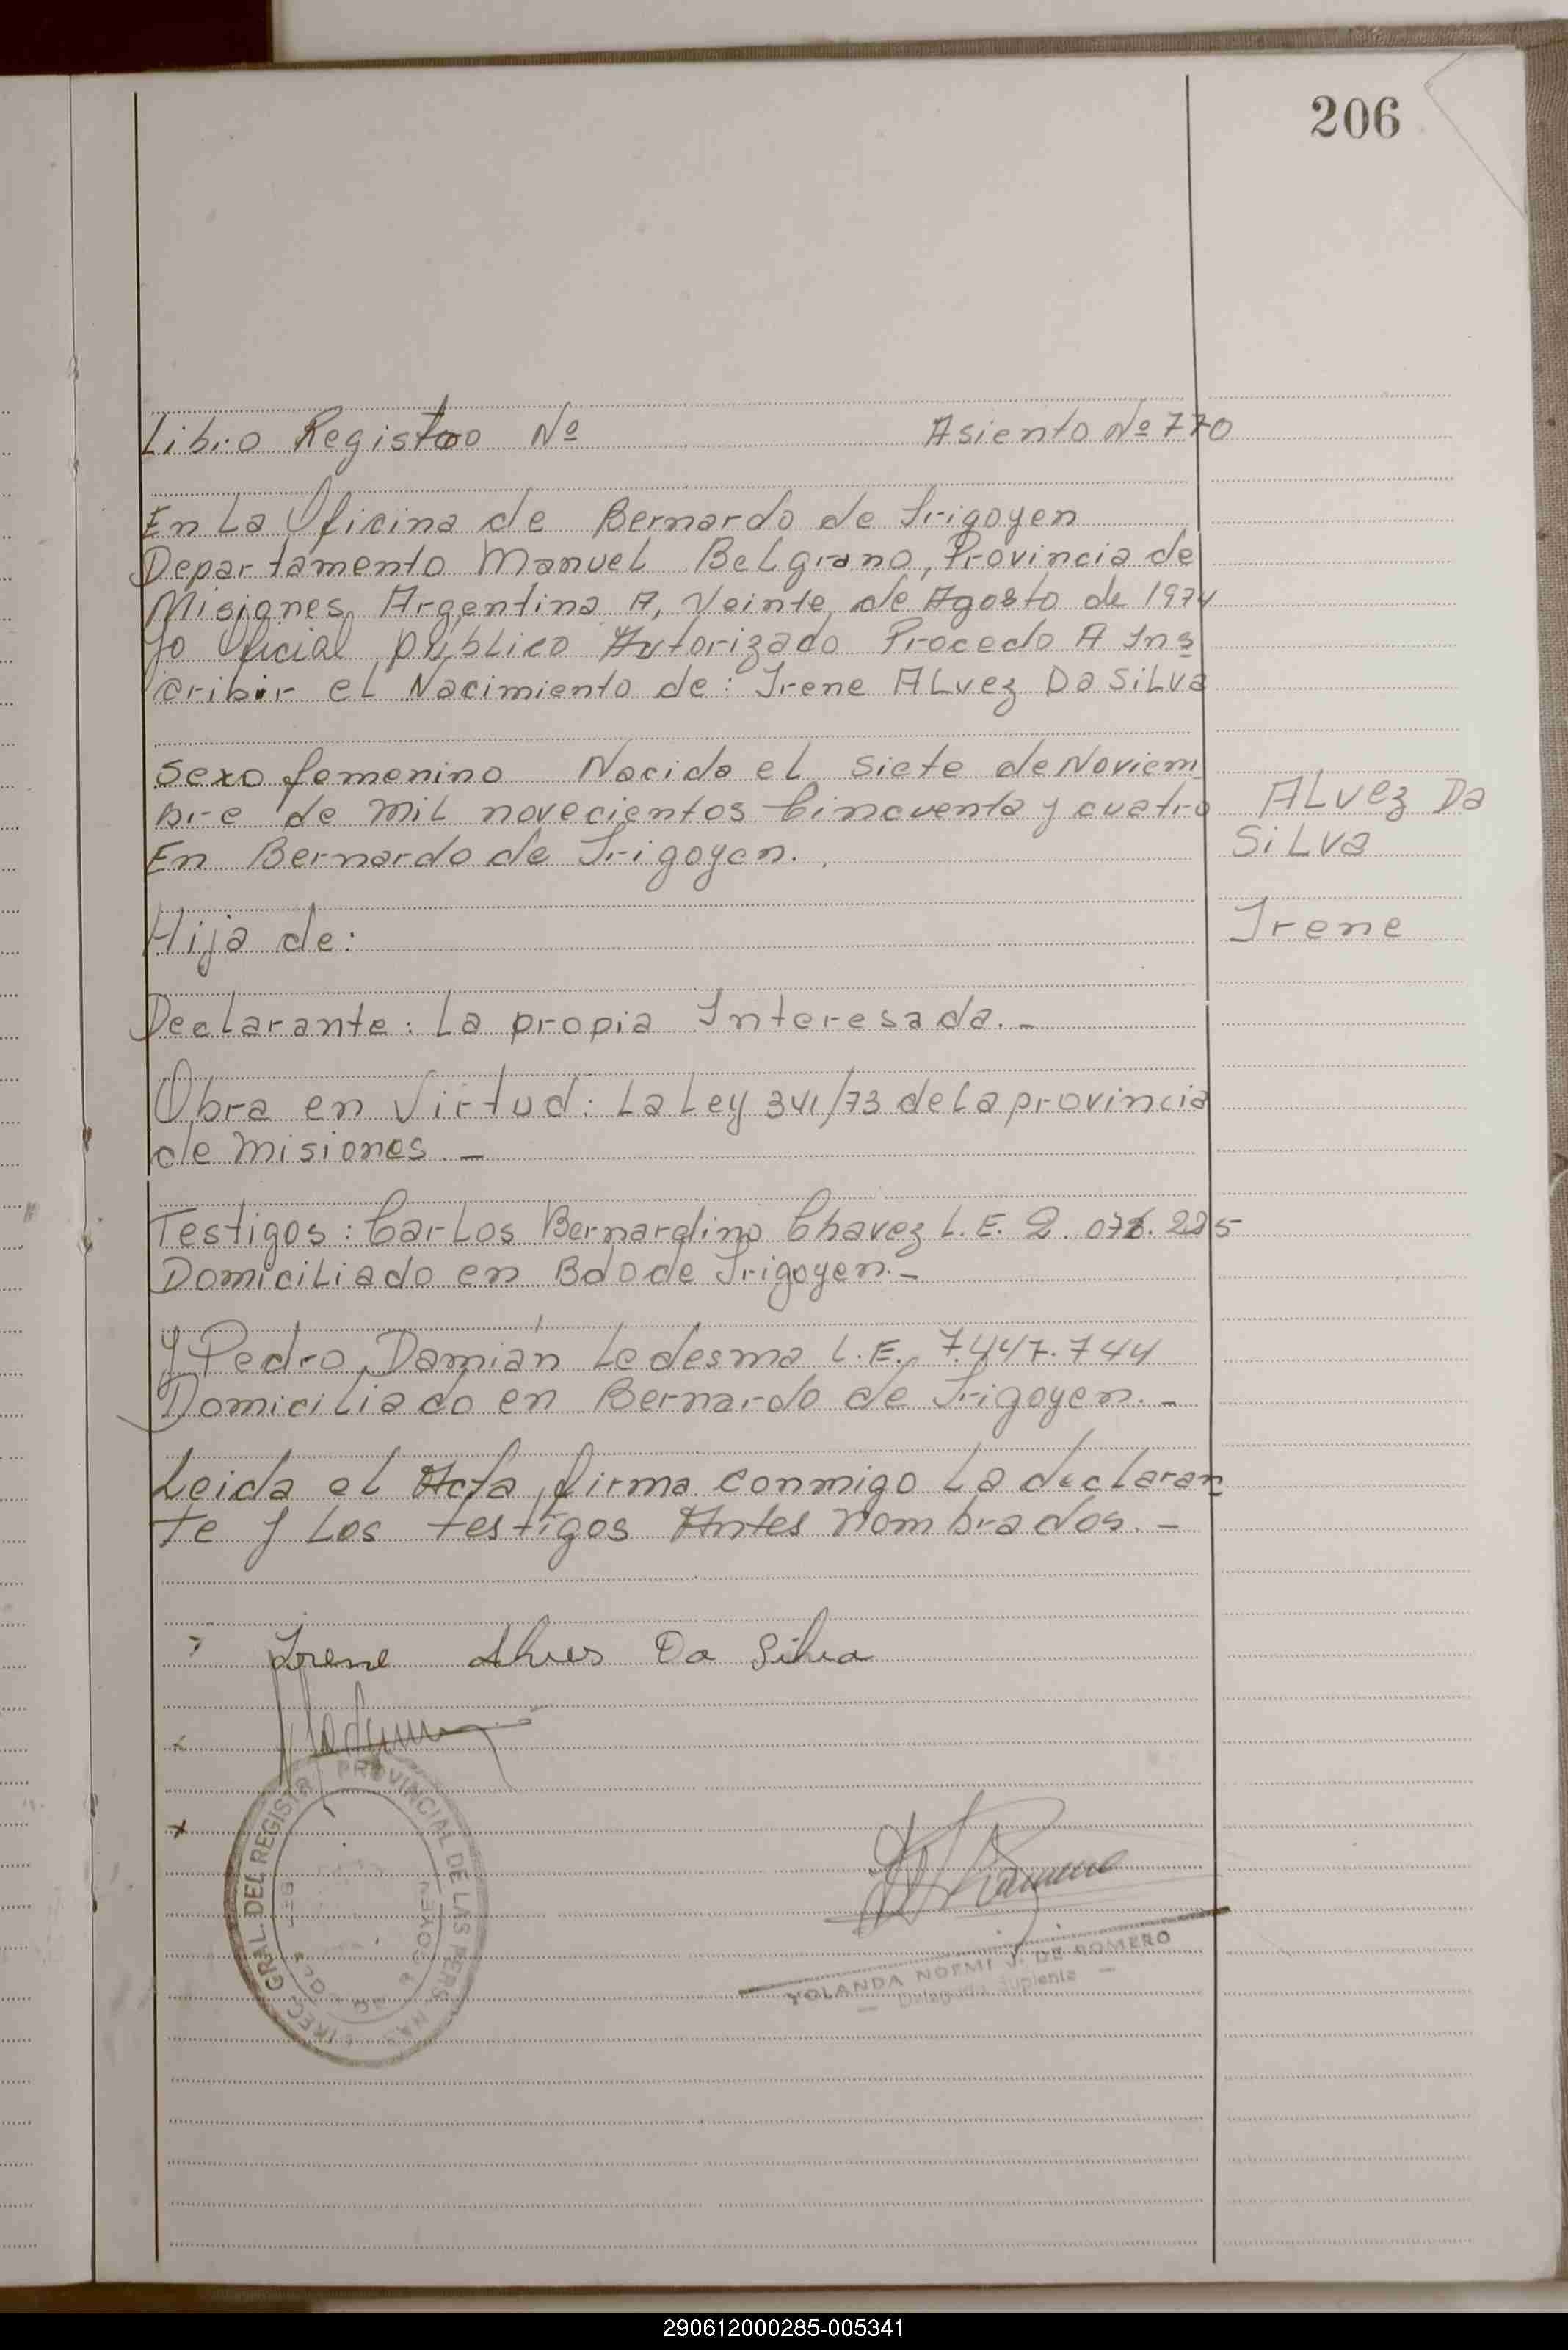 206
Libro Registro Nº Asiento Nº 770
En La Oficina de Bernardo de Irigoyen
Departamento Manuel Belgrano, Provincia de
Misiones, Argentina A, Veinte de Agosto de 1974
Yo Oficial público Autorizado Procedo A Ins
cribir el Nacimiento de: Irene ALvez Da SiLva
Sexo femenino Nacida el siete de Noviem
bre de mil novecientos Cincuenta y cuatro
En Bernardo de Irigoyen.
ALvez Da
SiLva
Irene
Hija de:
Declarante: La propia Interesada.-
Obra en Virtud: La Ley 341/73 de La provincia
de misiones.-
Testigos: CarLos Bernardino Chavez L.E. 2. 225
DomiciLiado en Bdo de Irigoyen.-
y Pedro Damián Ledesma L.E. 7.447.744
DomiciLiado en Bernardo de Irigoyen.-
Leida el Acta, firma conmigo La declaran
te y Los testigos Antes nombrados.-
Irene Alves Da Silva
GRAL. DEL REGISTRO PROVINCIAL DE LAS PERS
YOLANDA NOEMI J. DE ROMERO
- Delegada Suplente -
290612000285-005341